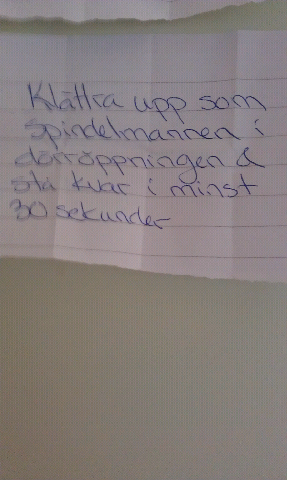 Klättra upp som
spindelmannen i
dörröppningen &
stå kvar i minst
30 sekunder